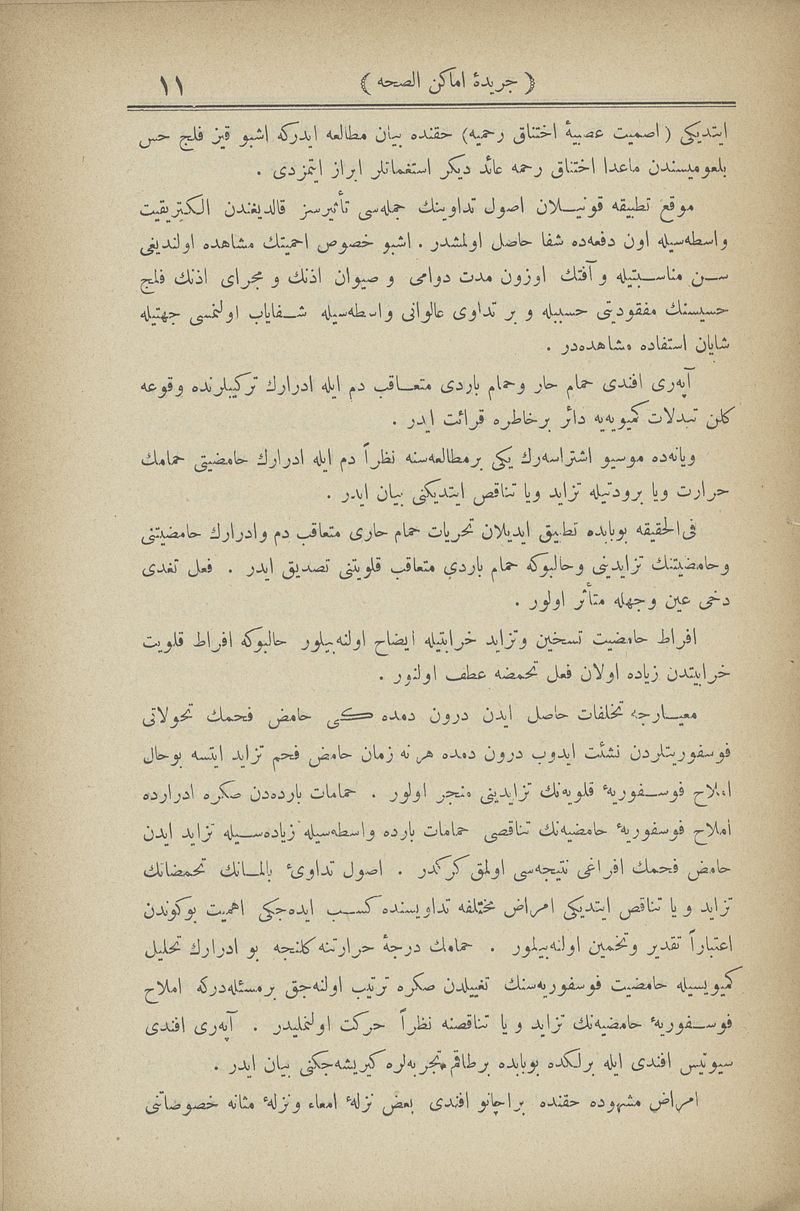 ﴿ جريدۀ اماكن الصحه ﴾ ١١
ايتديكى ( اصميت عصبيۀ اختناق رحميه) حقنده بيان مطالعه ايدركه اشبو قيز فلج حس
بلعوميسندن ماعدا اختناق رحمه عائد ديكر استغماتلر ابراز ايتمزدى .
موقع تطبيقه قونيلان اصول تداوينك جمله‌سى تأثيرسز قالديغندن الكتريقيت
واسطه‌سيله اون دفعه‌ده شفا حاصل اولمشدر . اشبو خصوص اهميتك مشاهده اولنديغى
سن مناسبتيله و آفتك اوزون مدت دوامى و صيوان اذنك و مجراى اذنك فلج
حسيسنك مفقوديتى حسبيله و بر تداوى غالوانى واسطه‌سيله شفاياب اولنمسى جهتيله
شايان استفاده مشاهده‌در .
آپه‌رى افندى حمام حار وحمام باردى متعاقب دم ايله ادرارك تركيبلرنده وقوعه
كلن تبدلات كميويه‌يه دائر برخاطره قرائت ايدر .
ويانه‌ده موسيو اشتراسه‌رك يكى برمطالعه‌سنه نظراً دم ايله ادرارك حامضيتى حمامك
حرارت ويا برودتيله تزايد ويا تناقص ايتديكنى بيان ايدر .
فى‌الحقيقه بوبابده تطبيق ايديلان تحريات حمام حارى متعاقب دم وادرارك حامضيتنى
وحامضيتنك تزايدينى وحالبوكه حمام باردى متعاقب قلويتنى تصديق ايدر . فعل تغدى
دخى عين وجهله متأثر اولور .
افراط حامضيت تسخين وتزايد خرابتيله ايضاح اولنه‌بيلور حالبوكه افراط قلويت
خرابيتدن زياده اولان فعل تحمضه عطف اولنور .
معيارجه تخلفات حاصل ايدن درون دمده كى حامض فحمك تحولاتى
فوسفوريتلردن نشئت ايدوب درون دمده هر نه زمان حامض فحم تزايد ايتسه بوحال
املاح فوسفوريۀ قلويه‌نك تزايدينى منجر اولور . حمامات بارده‌دن صكره ادرارده
املاح فوسفوريۀ حامضيه‌نك تناقصى حمامات بارده واسطه‌سيله زياده‌سيله تزايد ايدن
حامض فحمك افراغى نتيجه‌سى اولمق كركدر . اصول تداوئ بالمانك تحمضانك
تزايد و يا تناقص ايتديكى امراض مختلفه تداويسنده كسب ايده‌جكى اهميت بوكوندن
اعتباراً تقدير وتخمين اولنه‌بيلور . حمامك درجۀ حرارتنه كلنجه بو ادرارك تحليل
كميويسيله حامضيت فوسفوريه‌سنك تعييلدن صكره ترتيب اولنه‌جق برمسئله‌دركه املاح
فوسفوريۀ حامضيه‌نك تزايد و يا تناقصنه نظراً حركت اولنمليدر . آپه‌رى افندى
سيوتيس افندى ايله برلكده بوبابده برطاقم تجربه‌لره كيريشه‌جكنى بيان ايدر .
امراض مشهوده حقنده براچانو افندى بعض نزلۀ امعاء ونزلۀ مثانه خصوصاتنى